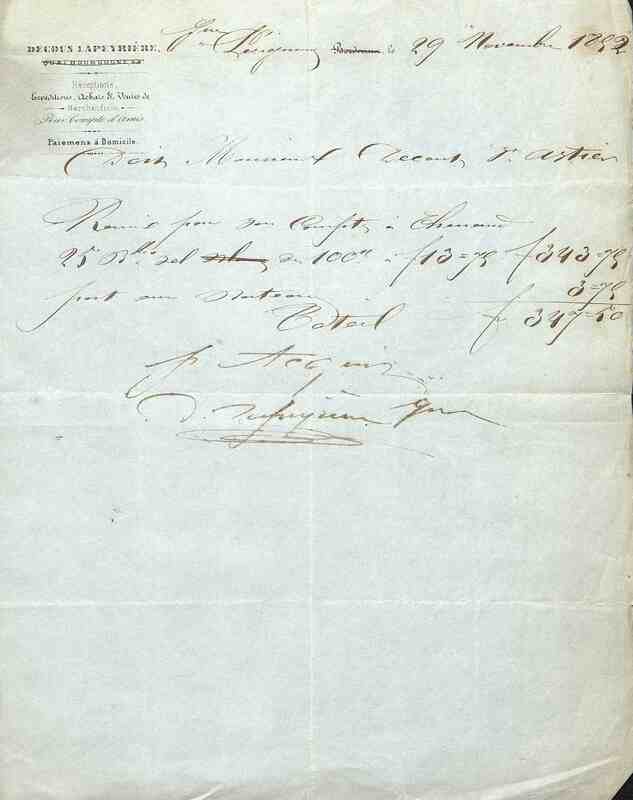 DECOUS LAPEYRIÈRE,
QUAI BOURGOGNE
Réceptions,
Expéditions, Achats & Ventes de
Marchandises
Pour Compte d'Amis.
Paiemens à Domicile.
Bordeaux le 29 Novembre 1852
Doit Monsieur Decout St Astier
Remis pour son Compte à
25 sel de 100 K à f 13=75 f 343=75
port au bateau 3=75
Total f 347=50
p. Acquit
D. Lapeyrière Jne